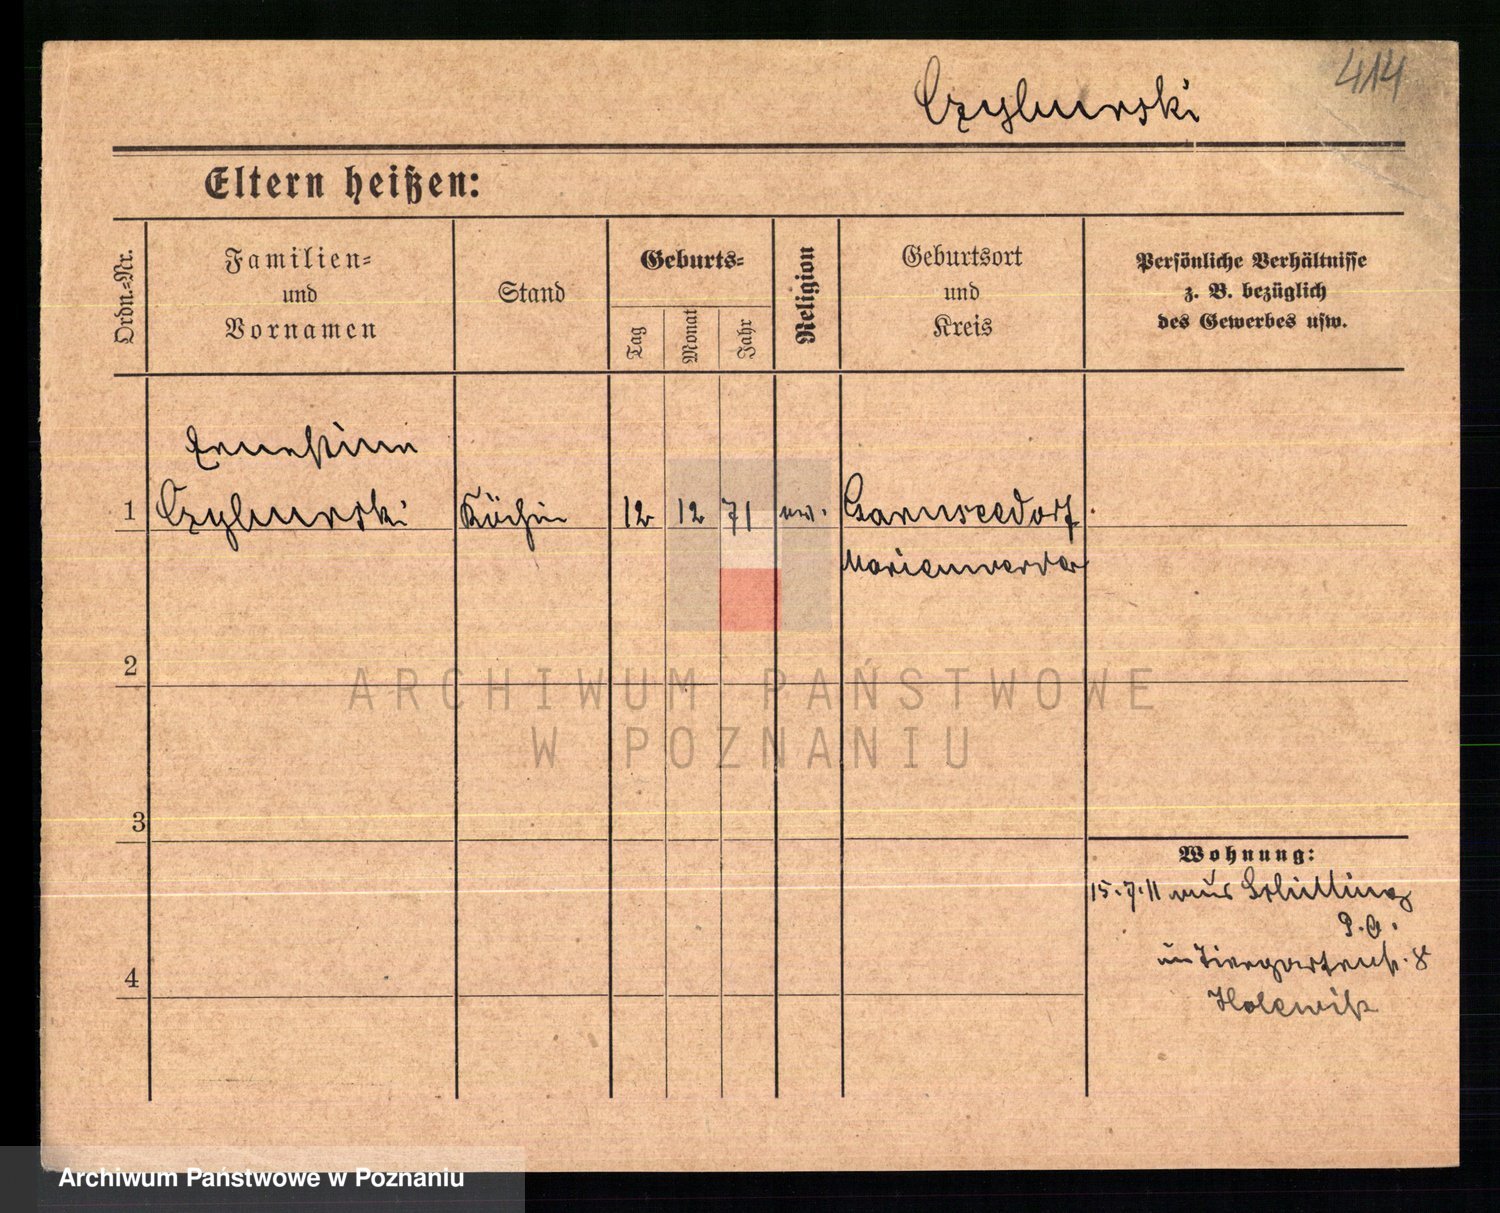 414
Czyburski
Eltern heißen:
Ordn.-Nr.
Familien-
und
Vornamen
Stand
Geburts-
Tag
Monat
Jahr
Religion
Geburtsort
und
Kreis
Persönliche Verhältnisse
z. B. bezüglich
des Gewerbes usw.
Ernestine
1 Czyburski Köchin 12 12 71 ev. Garnseedorf
Marienwerder
2
3
4
Wohnung:
15.7.11 aus Schilling
P.O.
in Tiergartenstr. 8
ARCHIWUM PAŃSTWOWE
W POZNANIU
Archiwum Państwowe w Poznaniu